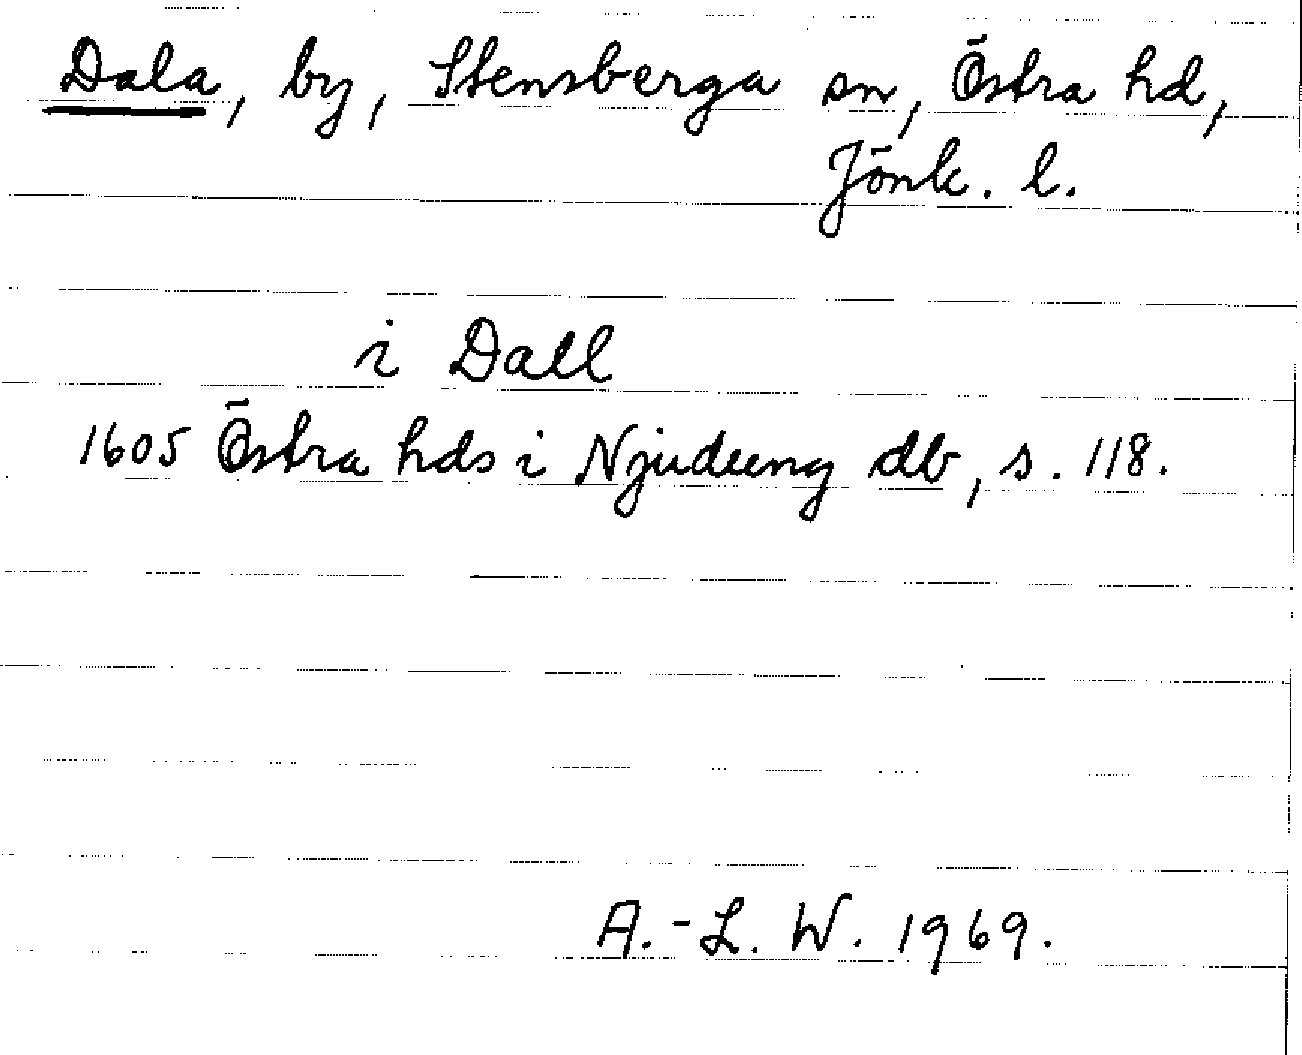 Dala, by, Stensberga sn, Östra hd,
Jönk. l.
i Dall
1605 Östra hds i Njudung db, s. 118.
A.-L. W. 1969.